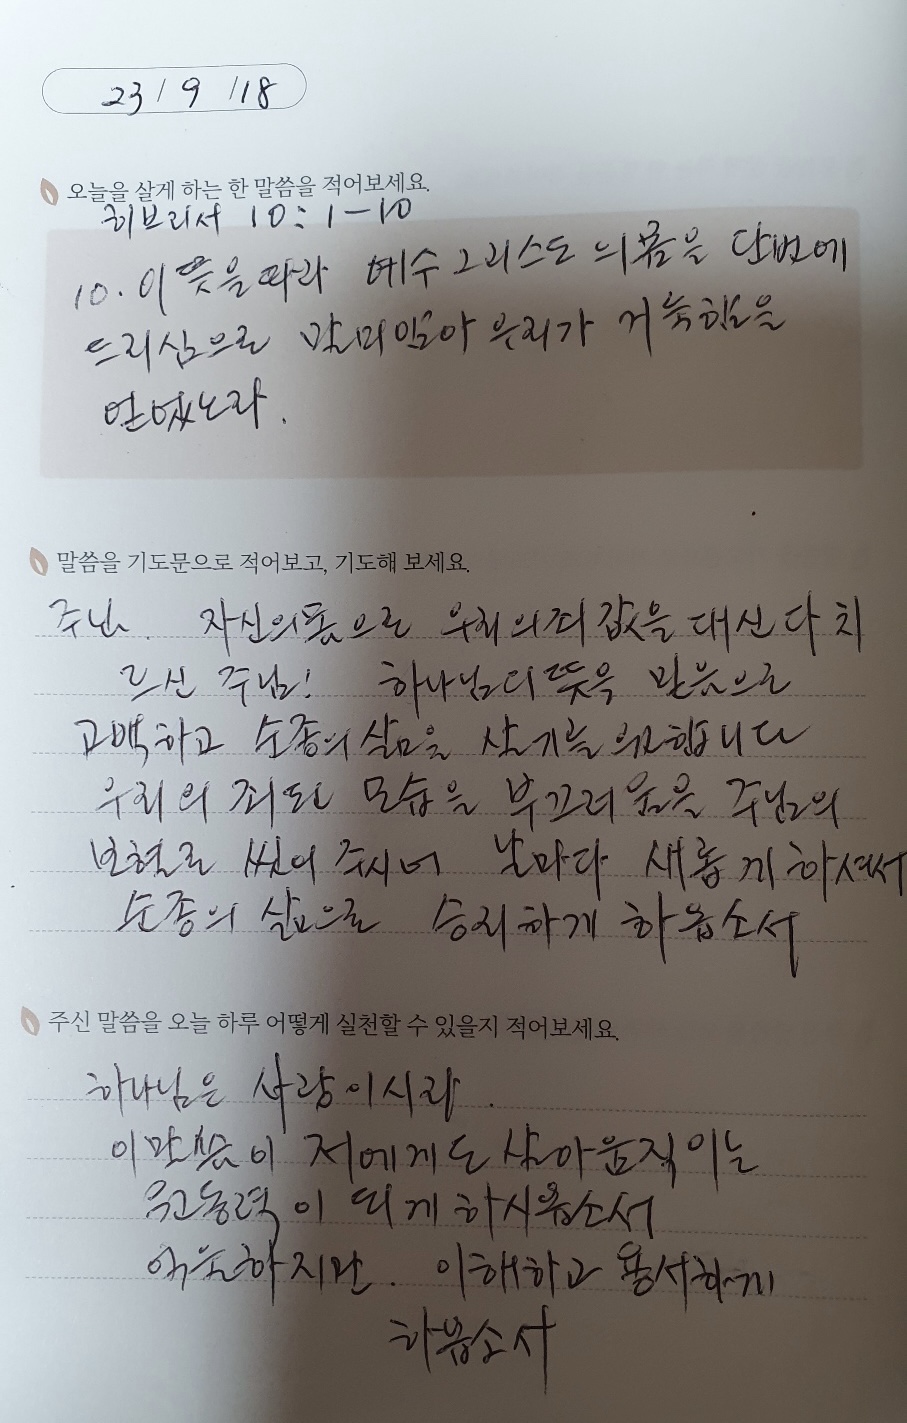 23 / 9 / 18
오늘을 살게 하는 한 말씀을 적어보세요.
히브리서 10:1-10
10. 이 뜻을 따라 예수 그리스도의 몸을 단번에
드리심으로 말미암아 우리가 거룩함을
얻었노라.
말씀을 기도문으로 적어보고, 기도해 보세요.
주님. 자신의 몸으로 우리의 죄 값을 대신 다 치
르신 주님! 하나님의 뜻을 믿음으로
고백하고 순종의 삶을 살기를 원합니다
우리의 죄된 모습을 부끄러움을 주님의
보혈로 씻어 주시어 날마다 새롭게 하셔서
순종의 삶으로 승리하게 하옵소서
주신 말씀을 오늘 하루 어떻게 실천할 수 있을지 적어보세요.
하나님은 사랑이시라.
이 말씀이 저에게도 살아 움직이는
원동력이 되게 하시옵소서
억울하지만. 이해하고 용서하게
하옵소서